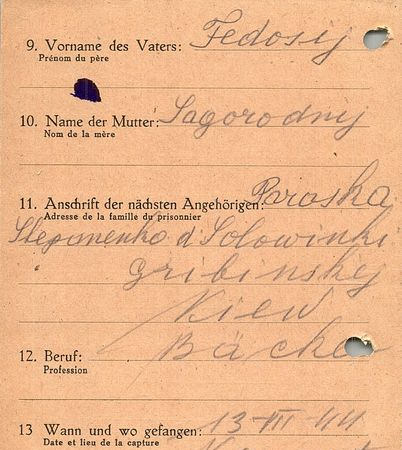 9. Vorname des Vaters: Fedosij
Prénom du père
10. Name der Mutter: Sagorodnij
Nom de la mère
11. Anschrift der nächsten Angehörigen: Paraska
Adresse de la famille du prisonnier
Stepanenko d Solowinki
Gribinskij
Kiew
12. Beruf: Bäcker
Profession
13 Wann und wo gefangen: 13-III-44
Date et lieu de la capture